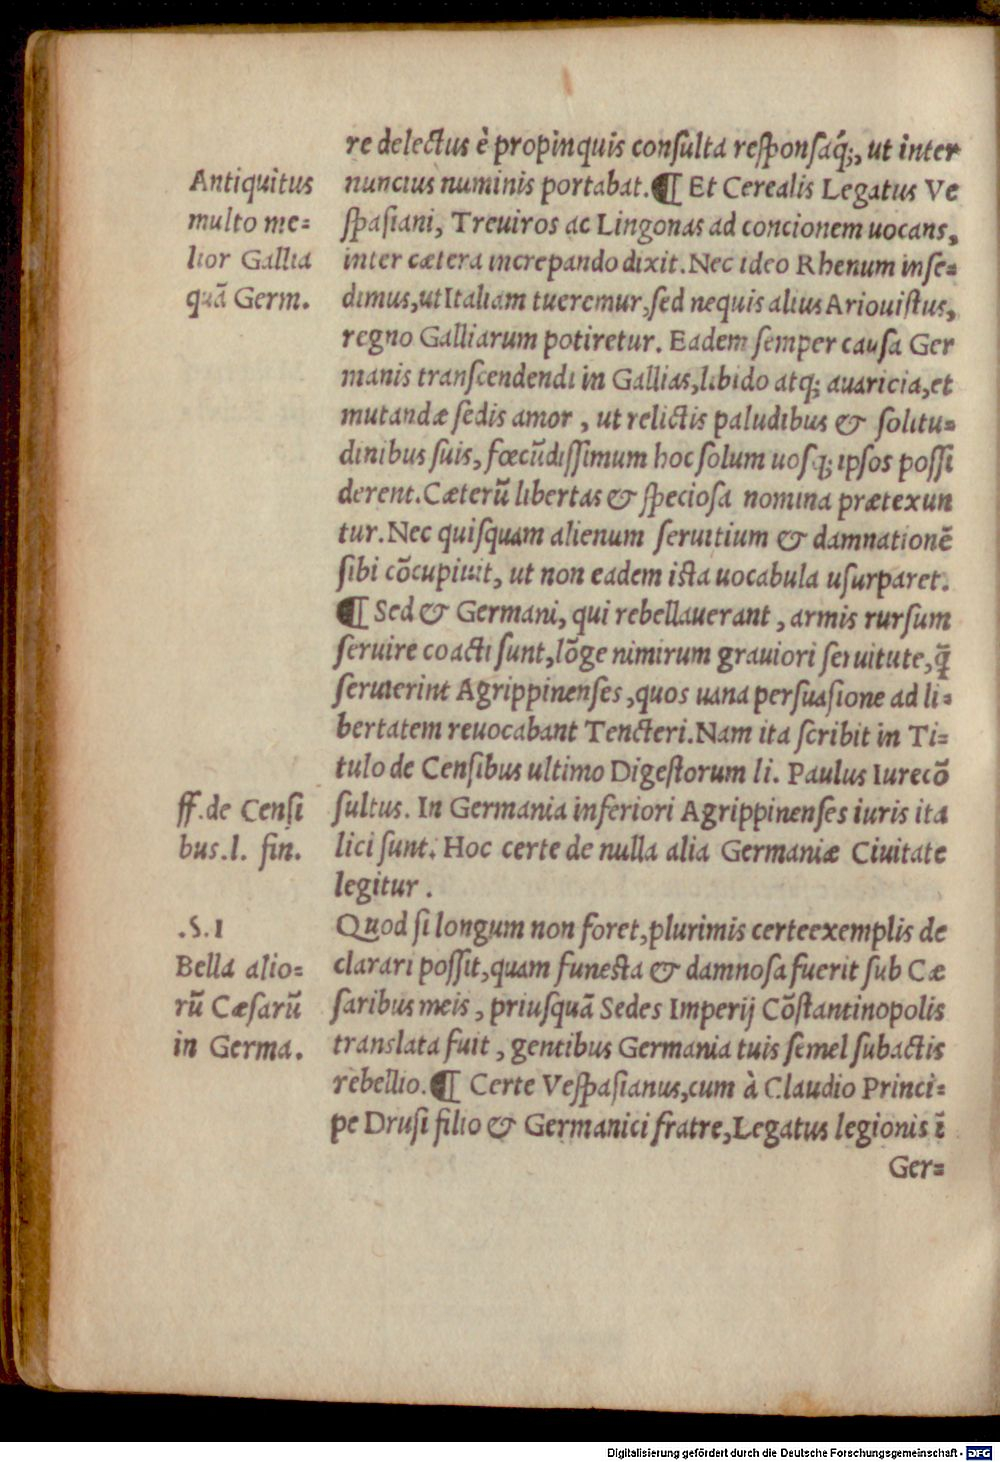 re delectus è propinquis consulta responsaq́;, ut inter
nuncius numinis portabat.¶ Et Cerealis Legatus Ve
spasiani, Treuiros ac Lingonas ad concionem uocans,
inter cætera increpando dixit. Nec ideo Rhenum inse=
dimus, ut Italiam tueremur, sed nequis alius Ariouistus,
regno Galliarum potiretur. Eadem semper causa Ger
manis transcendendi in Gallias, libido atq; auaricia, et
mutandæ sedis amor, ut relictis paludibus & solitu=
dinibus suis, fœcũdissimum hoc solum uosq; ipsos possi
derent. Cæterũ libertas & speciosa nomina prætexun
tur. Nec quisquam alienum seruitium & damnationẽ
sibi cõcupiuit, ut non eadem ista uocabula usurparet.
¶ Sed & Germani, qui rebellauerant, armis rursum
seruire coacti sunt, lõge nimirum grauiori seruitute, q̃
seruierint Agrippinenses, quos uana persuasione ad li=
bertatem reuocabant Tencteri. Nam ita scribit in Ti=
tulo de Censibus ultimo Digestorum li. Paulus Iurecõ
sultus. In Germania inferiori Agrippinenses iuris ita
lici sunt. Hoc certe de nulla alia Germaniæ Ciuitate
legitur.
Quod si longum non foret, plurimis certe exemplis de
clarari possit, quam funesta & damnosa fuerit sub Cæ
saribus meis, priusquã Sedes Imperij Cõstantinopolis
translata fuit, gentibus Germania tuis semel subactis
rebellio.¶ Certe Vespasianus, cum à Claudio Princi=
pe Drusi filio & Germanici fratre, Legatus legionis ĩ
Ger=
Antiquitus
multo me=
lior Gallia
quã Germ.
ff. de Censi
bus. l. fin.
.S. I
Bella alio=
rũ Cæsarũ
in Germa.
Digitalisierung gefördert durch die Deutsche Forschungsgemeinschaft - DFG